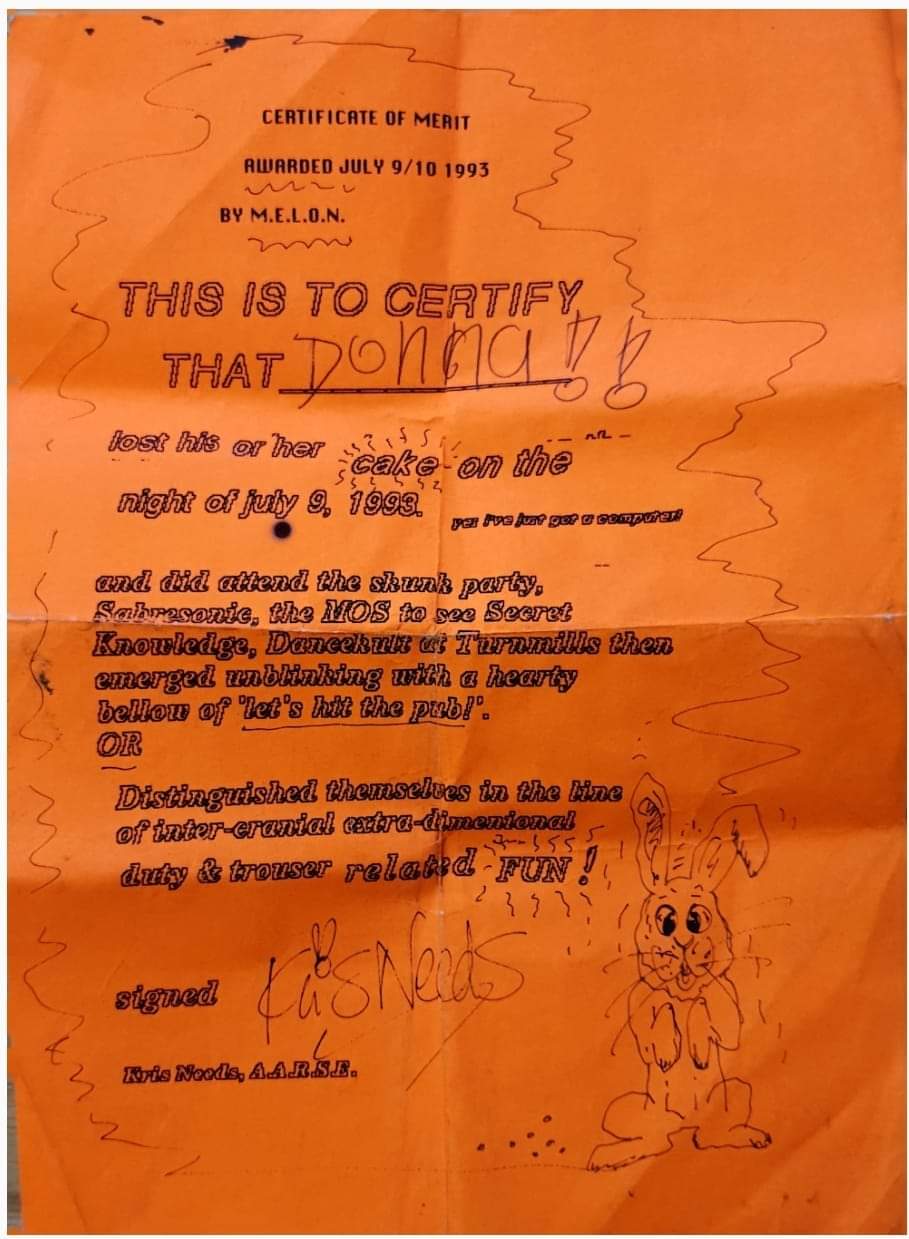 CERTIFICATE OF MERIT
AWARDED JULY 9/10 1993
BY M.E.L.O.N.
THIS IS TO CERTIFY
THAT Donna!!
lost his or her cake on the
night of july 9, 1993.
yes i've just got a computer!
and did attend the skunk party,
Sabresonic, the MOS to see Secret
Knowledge, Dancekult at Turnmills then
emerged unblinking with a hearty
bellow of 'let's hit the pub!'.
OR
Distinguished themselves in the line
of inter-cranial extra-dimenional
duty & trouser related FUN!
signed Kris Needs
Kris Needs, A.A.R.S.E.